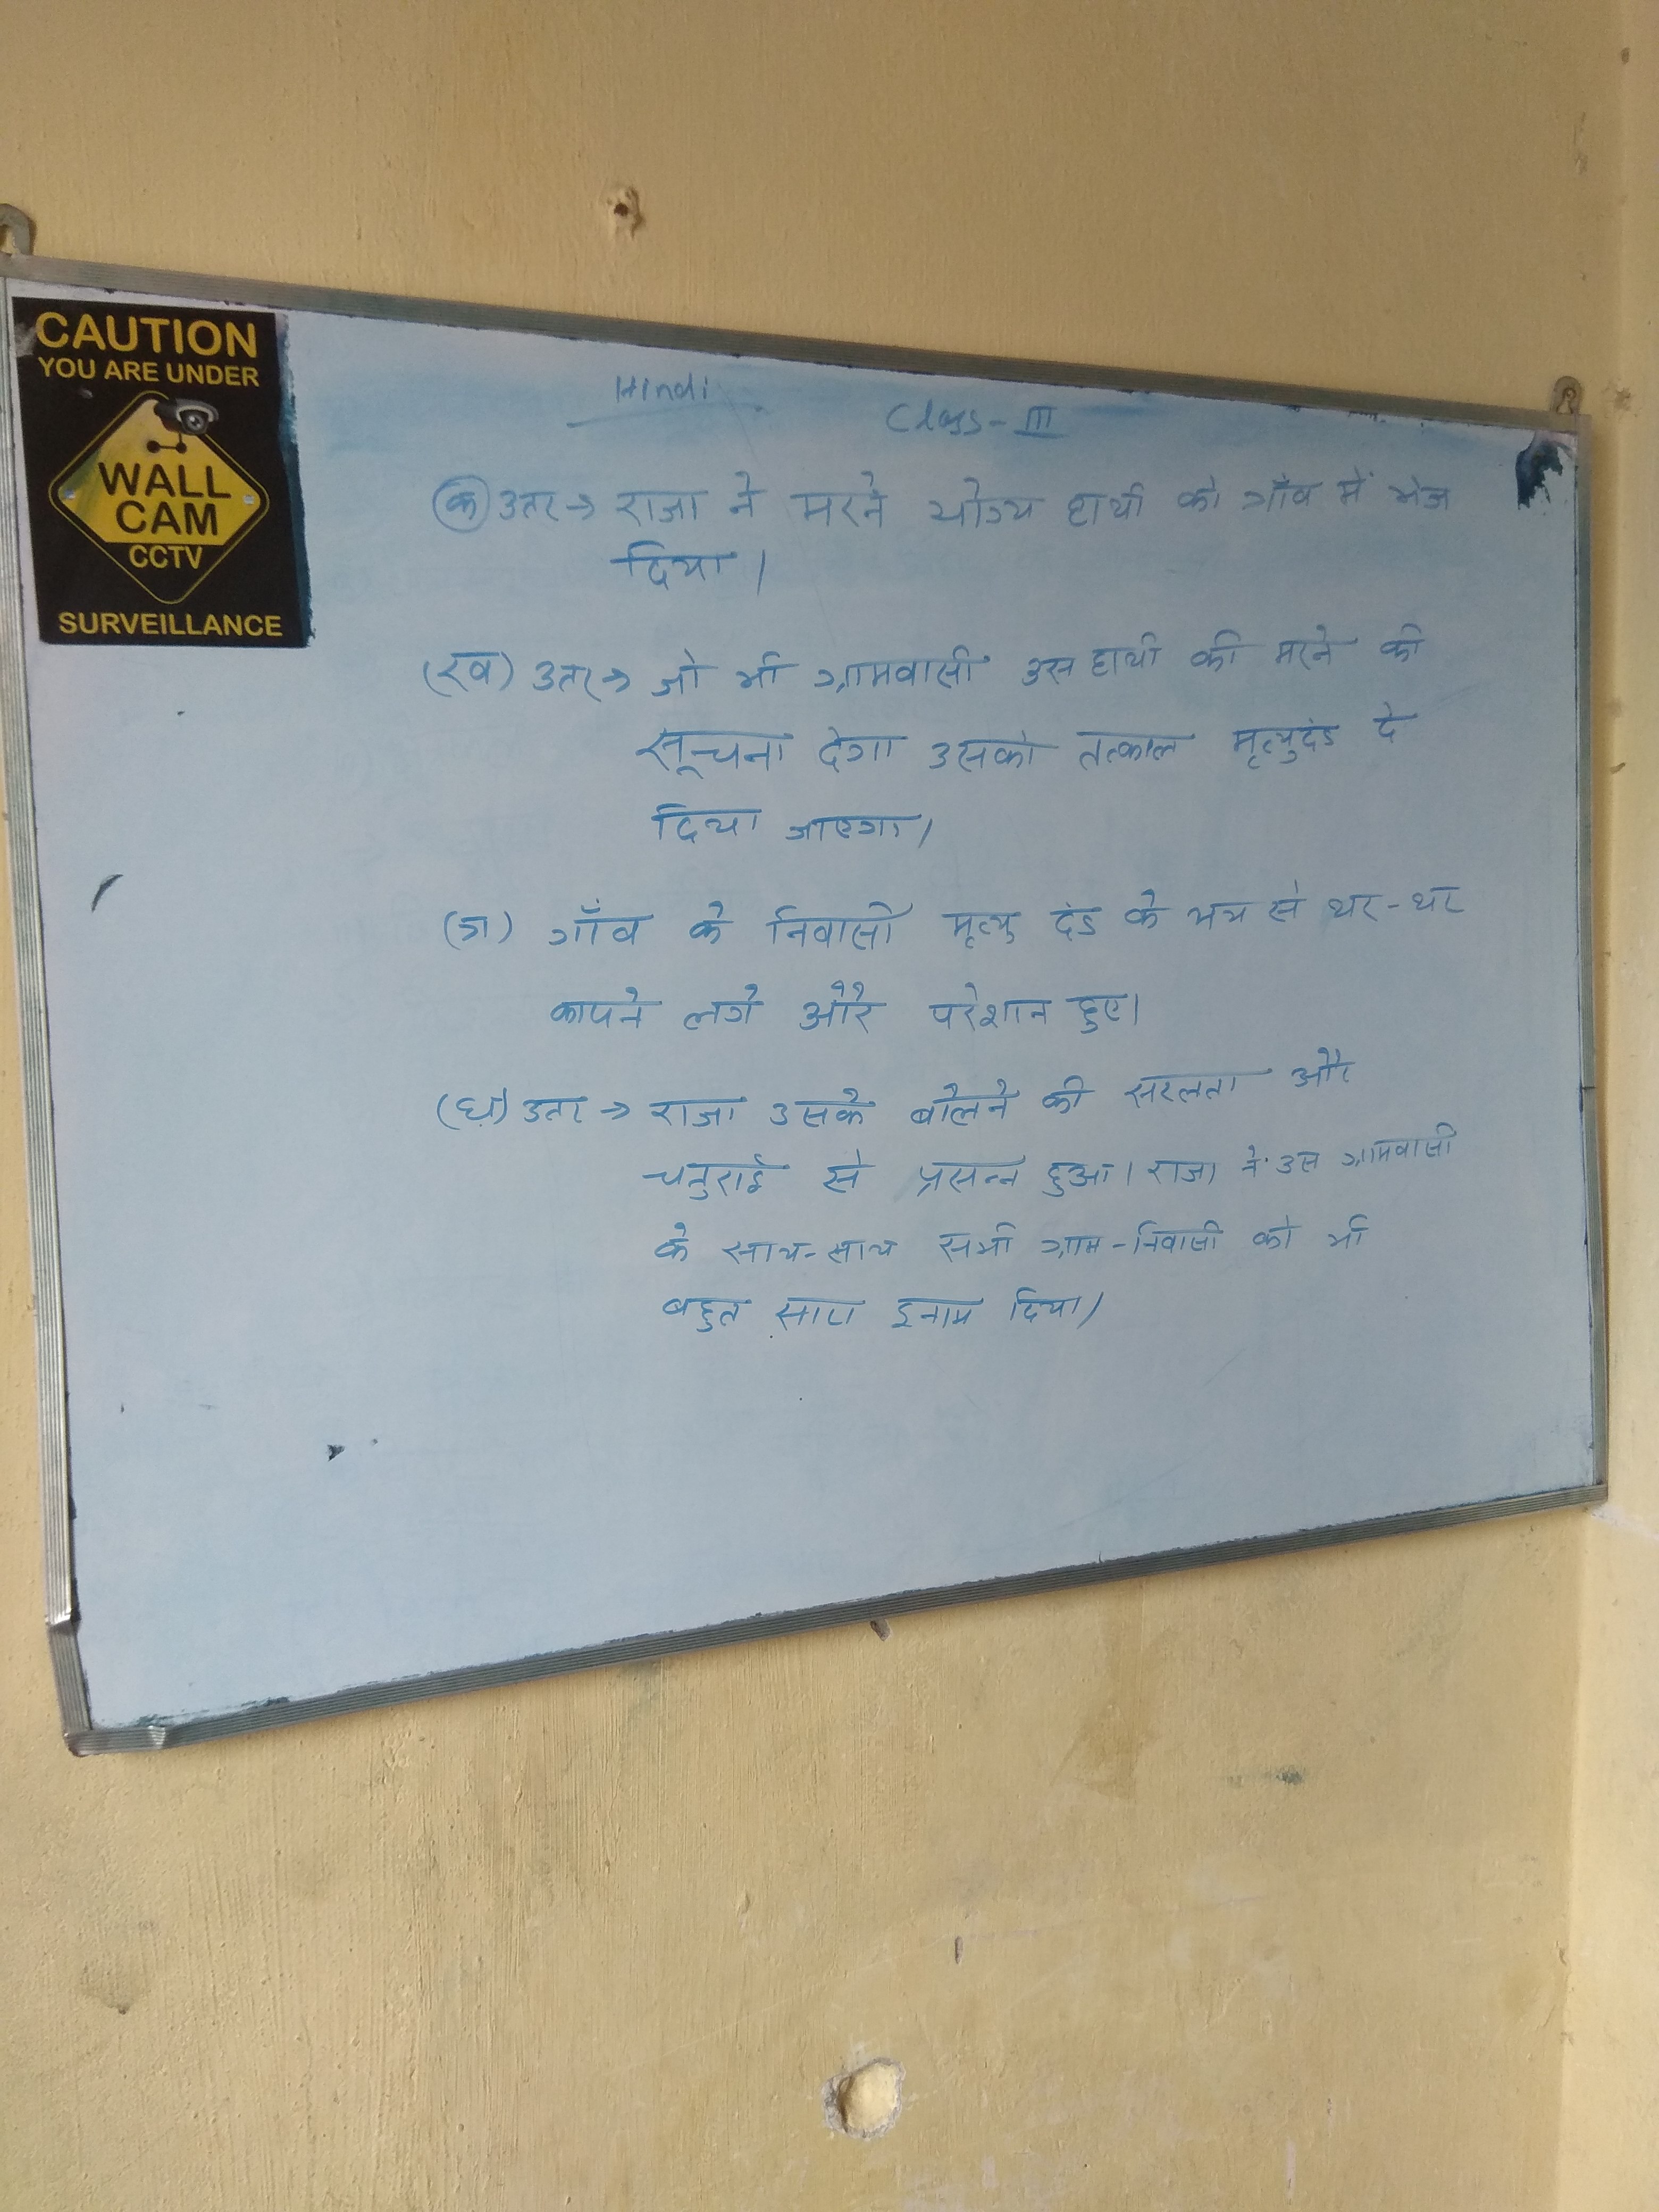 CAUTION
YOU ARE UNDER
WALL
CAM
CCTV
SURVEILLANCE
Hindi
Class-III
(क) उतर→ राजा ने मरने योग्य हाथी को गाँव में भेज
दिया।
(ख) उतर→ जो भी ग्रामवासी उस हाथी की मरने की
सूचना देगा उसको तत्काल मृत्युदंड दे
दिया जाएगा।
(ग) गाँव के निवासी मृत्यु दंड के भय से थर-थर
कापने लगे और परेशान हुए।
(घ) उतर → राजा उसके बोलने की सरलता और
चतुराई से प्रसन्न हुआ। राजा ने उस ग्रामवासी
के साथ-साथ सभी ग्राम-निवासी को भी
बहुत सारा इनाम दिया।